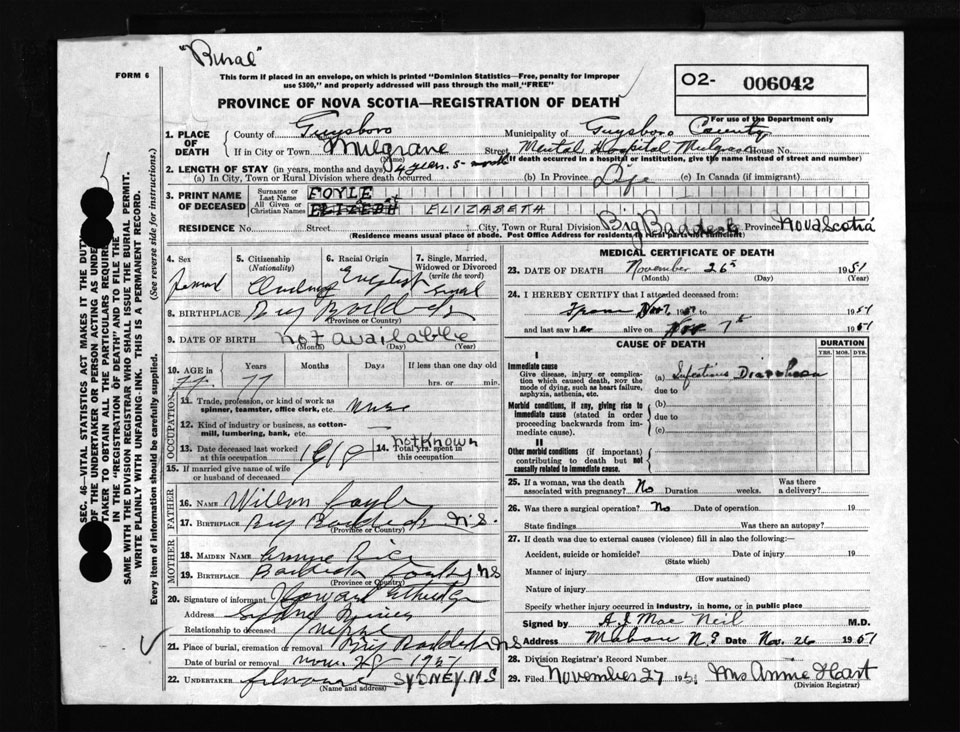 "Rural"
FORM 6
This form if placed in an envelope, on which is printed "Dominion Statistics—Free, penalty for improper
use $300," and properly addressed will pass through the mail "FREE"
O2- 006042
For use of the Department only
PROVINCE OF NOVA SCOTIA—REGISTRATION OF DEATH
1. PLACE OF DEATH
County of Guysboro Municipality of Guysboro County
If in City or Town Mulgrave Street Mental Hospital Mulgrave House No.
(Name) If death occurred in a hospital or institution, give the name instead of street and number)
2. LENGTH OF STAY (in years, months and days) 4 years. 5-month
(a) In City, Town or Rural Division where death occurred (b) In Province Life (c) In Canada (if immigrant)
3. PRINT NAME OF DECEASED
Surname or Last Name FOYLE
All Given or Christian Names ELIZABETH
RESIDENCE No. Street City, Town or Rural Division Big Baddeck Province Nova Scotia
(Residence means usual place of abode. Post Office Address for residents in rural parts not sufficient)
4. Sex 5. Citizenship (Nationality) 6. Racial Origin 7. Single, Married, Widowed or Divorced (write the word)
8. BIRTHPLACE Big Baddeck
(Province or Country)
9. DATE OF BIRTH Not available
(Month) (Day) (Year)
10. AGE in Years Months Days If less than one day old
77 hrs. or min.
OCCUPATION
11. Trade, profession, or kind of work as
spinner, teamster, office clerk, etc. Nurse
12. Kind of industry or business, as cotton-
mill, lumbering, bank, etc.
13. Date deceased last worked at this occupation 1918
14. Total yrs. spent in this occupation not known
15. If married give name of wife
or husband of deceased
FATHER
16. NAME
17. BIRTHPLACE Big Baddeck N.S.
(Province or Country)
MOTHER
18. MAIDEN NAME Rice
19. BIRTHPLACE Baddeck NS
(Province or Country)
20. Signature of informant Howard
Address Sydney Mines
Relationship to deceased
21. Place of burial, cremation or removal Big Baddeck NS
Date of burial or removal Nov. 28 1957
22. UNDERTAKER SYDNEY. N.S
(Name and address)
MEDICAL CERTIFICATE OF DEATH
23. DATE OF DEATH November 26 1951
(Month) (Day)
24. I HEREBY CERTIFY that I attended deceased from:
From
and last saw her alive on Nov 7th
CAUSE OF DEATH DURATION
YRS. MOS. DYS.
I
Immediate cause
Give disease, injury or complication which caused death, not the mode of dying, such as heart failure, asphyxia, asthenia, etc.
(a) Infectious Diarrhoea
due to
Morbid conditions, if any, giving rise to immediate cause (stated in order proceeding backwards from immediate cause).
(b)
due to
(c)
II
Other morbid conditions (if important) contributing to death but not causally related to immediate cause.
25. If a woman, was the death associated with pregnancy? No Duration weeks. Was there a delivery?
26. Was there a surgical operation? No Date of operation 19
State findings Was there an autopsy?
27. If death was due to external causes (violence) fill in also the following:—
Accident, suicide or homicide? Date of injury 19
(State which)
Manner of injury
(How sustained)
Nature of injury
Specify whether injury occurred in industry, in home, or in public place
Signed by A.J Mac Neil M.D.
Address Mabou N.S Date Nov. 26
28. Division Registrar's Record Number
29. Filed November 27 195 Mrs Annie Hart
(Division Registrar)
SEC. 46—VITAL STATISTICS ACT MAKES IT THE DUTY
OF THE UNDERTAKER OR PERSON ACTING AS UNDER-
TAKER TO OBTAIN ALL THE PARTICULARS REQUIRED
IN THE "REGISTRATION OF DEATH" AND TO FILE THE
SAME WITH THE DIVISION REGISTRAR WHO SHALL ISSUE THE BURIAL PERMIT.
WRITE PLAINLY WITH UNFADING INK. THIS IS A PERMANENT RECORD.
Every item of information should be carefully supplied. (See reverse side for instructions.)